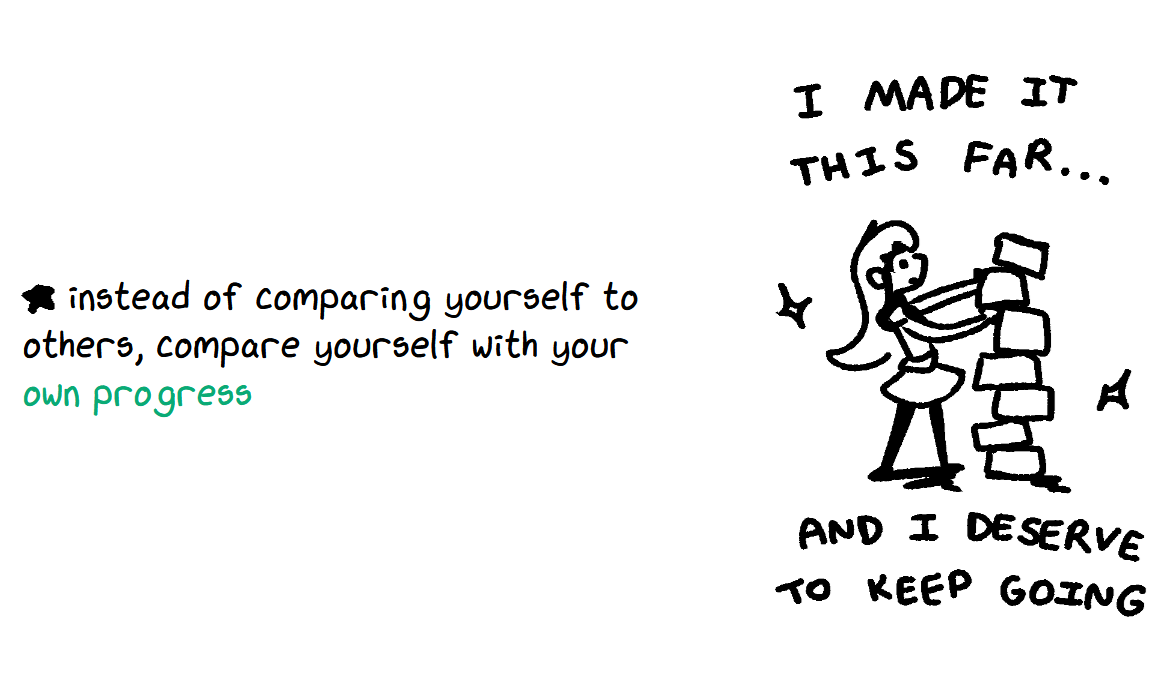 instead of comparing yourself to
others, compare yourself with your
own progress
I MADE IT
THIS FAR...
AND I DESERVE
TO KEEP GOING